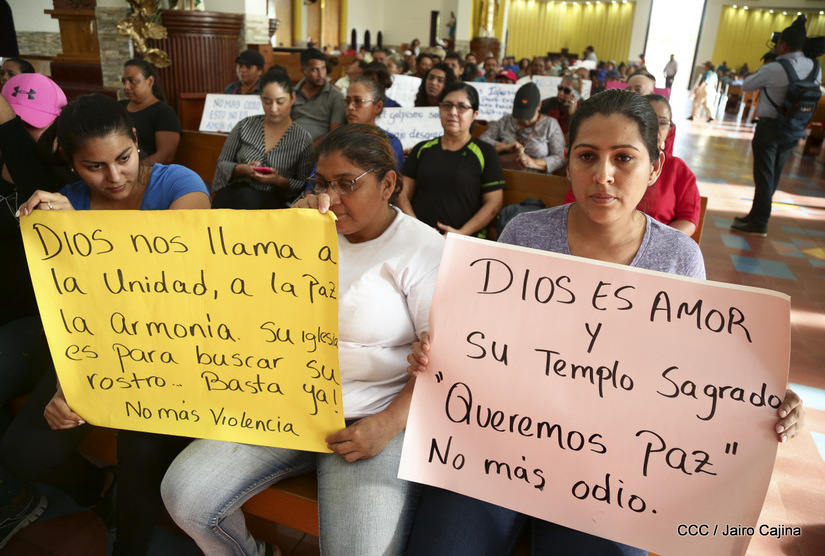 Dios nos llama a
la Unidad, a la Paz
la armonía. Su iglesia
es para buscar su
rostro... Basta ya!
No más Violencia
DIOS ES AMOR
Y
Su Templo Sagrado
"Queremos Paz"
No más odio.
NO MÁS
CCC / Jairo Cajina